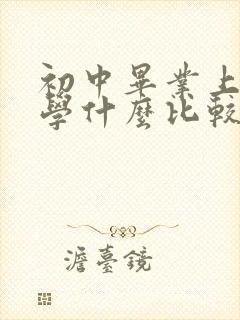 初中畢業上
學什麼比較
澹臺鏡